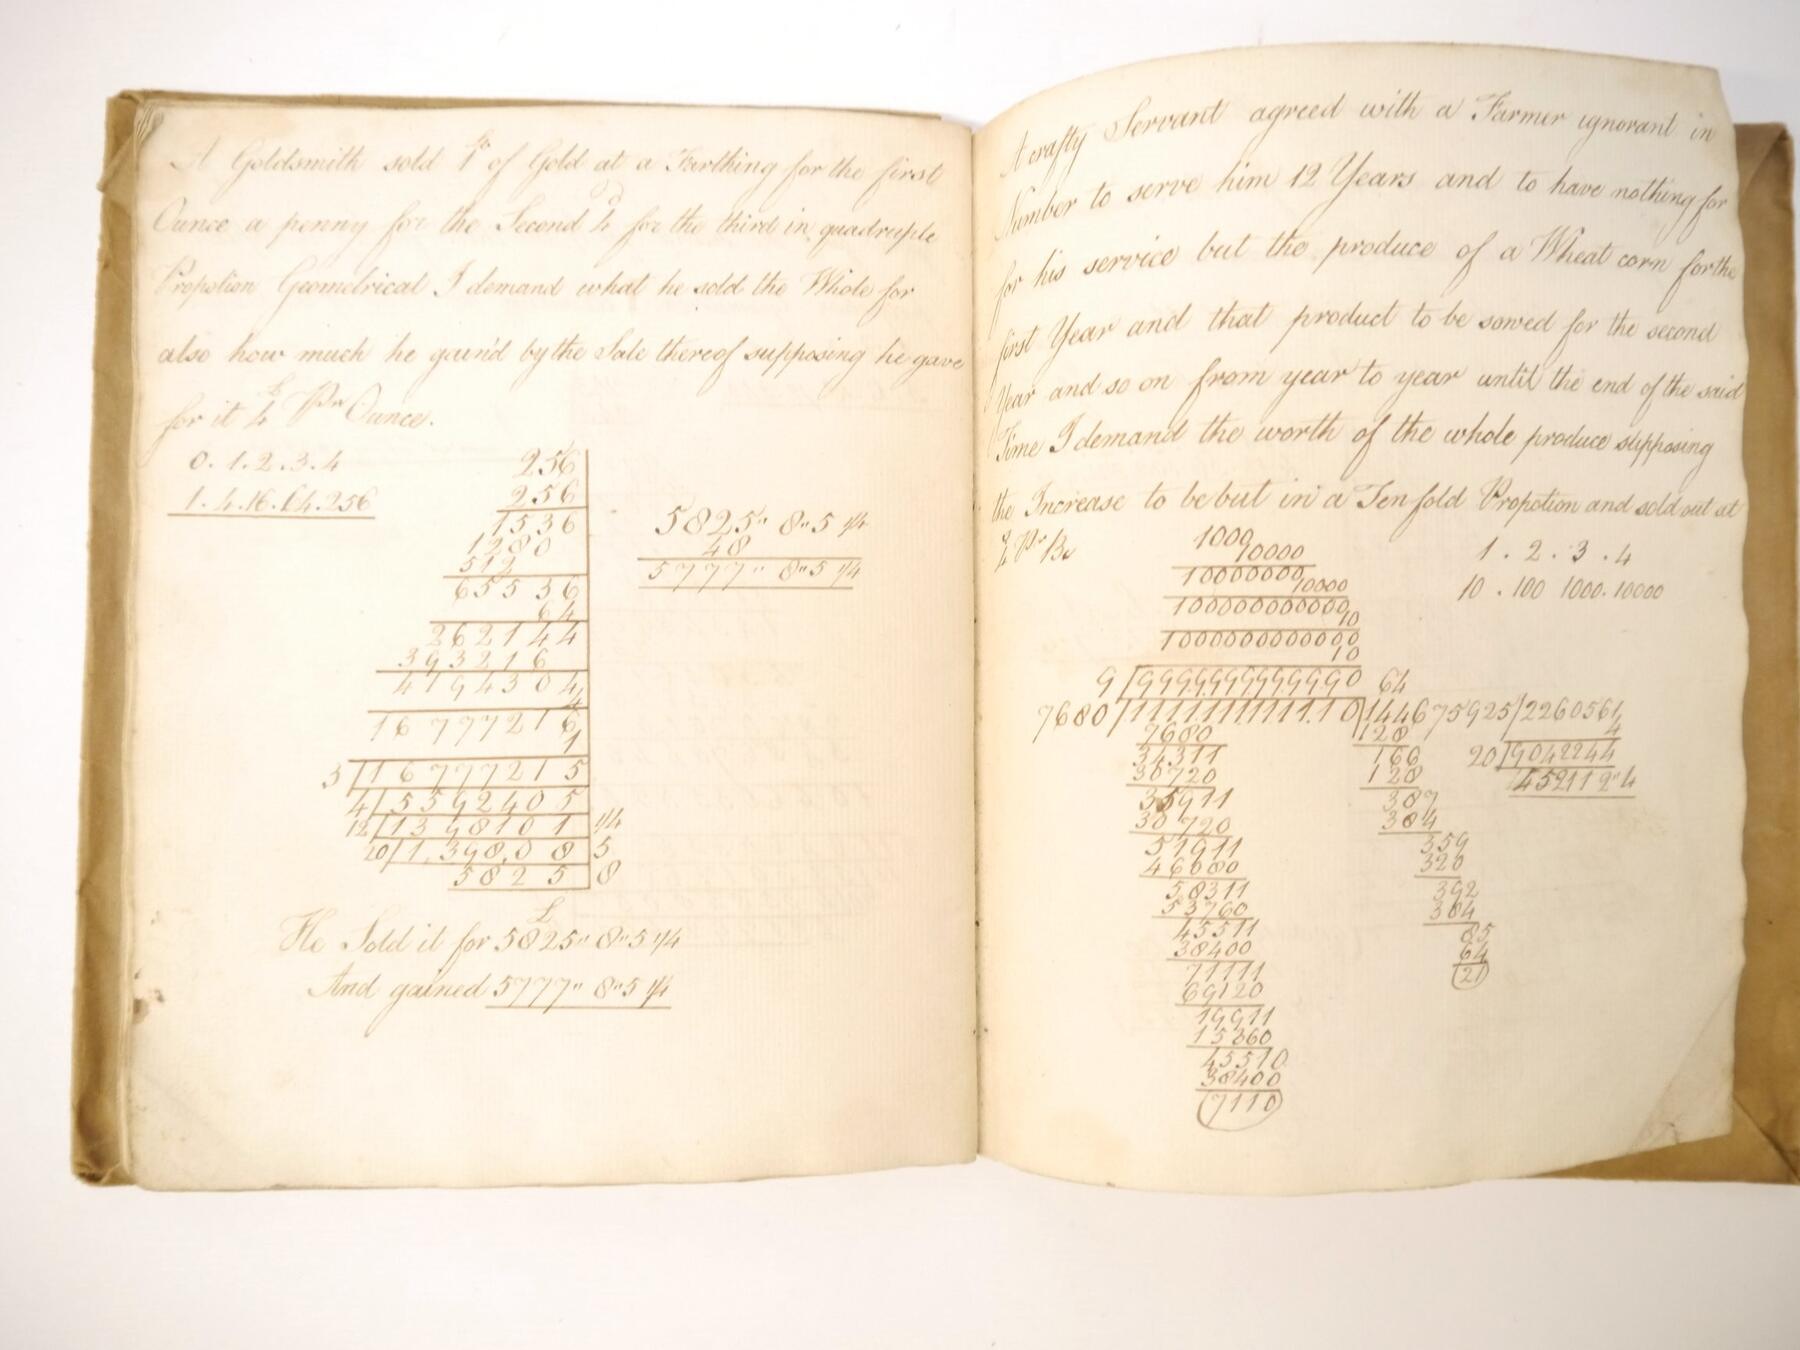 A Goldsmith sold 1 lb of Gold at a Farthing for the first
Ounce a penny for the Second 4 d for the third in quadruple
Propotion Geometrical I demand what he sold the Whole for
also how much he gain'd by the Sale thereof supposing he gave
for it 4 £ Pr Ounce.
0. 1. 2. 3. 4
1. 4. 16. 64. 256
256
256
1536
1280
512
65536
64
262144
393216
4194304
4
16777216
1
3/16777215
4/5592405
12/1398101 1/4
20/1,398,0 8 5
5825 8
5825" 8" 5 1/4
48
5777" 8" 5 1/4
He Sold it for £ 5825" 8" 5 1/4
And gained 5777" 8" 5 1/4
A crafty Servant agreed with a Farmer ignorant in
Number to serve him 12 Years and to have nothing for
for his service but the produce of a Wheat corn for the
first Year and that product to be sowed for the second
Year and so on from year to year until the end of the said
Time I demand the worth of the whole produce supposing
the Increase to be but in a Ten fold Propotion and sold out at
4 Pr
1. 2. 3. 4
10. 100 1000. 10000
1000
10000
10000000
10000
100000000000
10
1000000000000
10
9/9999999999990
7680/1111111111110/144675925
7680
34311
30720
35911
30720
51911
46080
58311
53760
45511
38400
71111
69120
19911
15360
45510
38400
7110
64/144675925/2260561
128
166
128
387
384
359
320
392
384
85
64
21
4
20/9042244
452112" 4